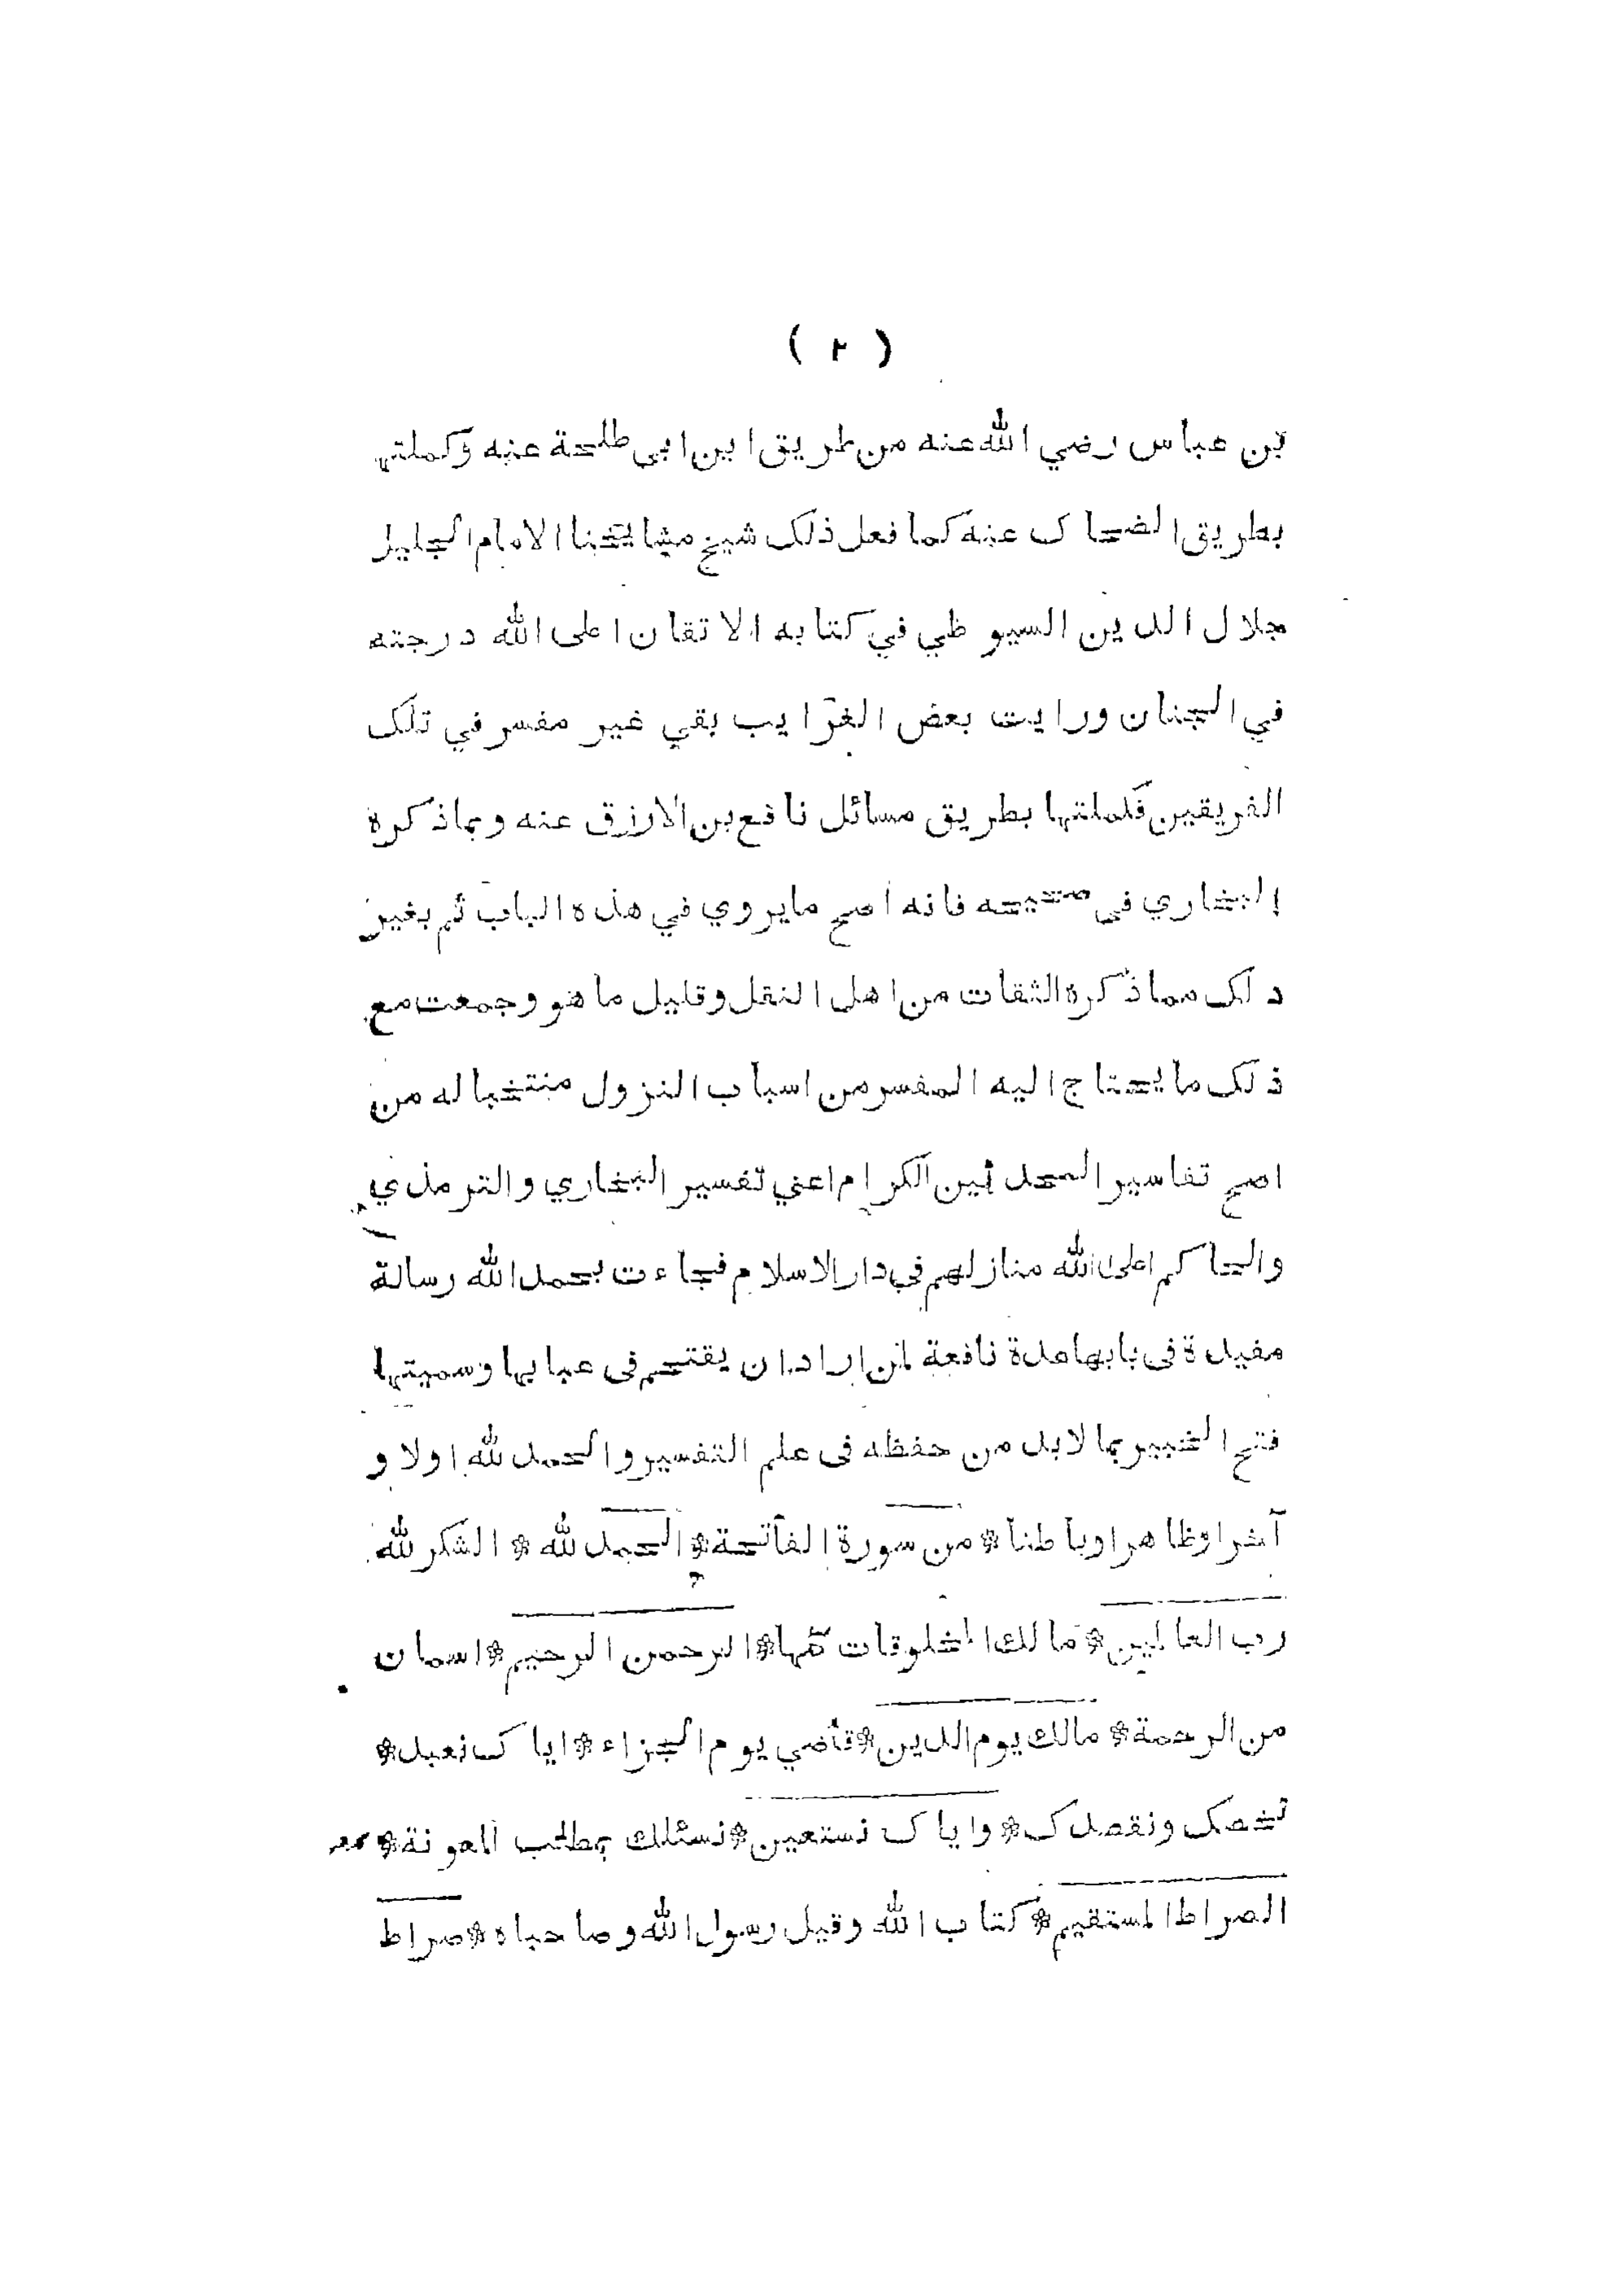 ( ٢ )
بن عباس رضي الله عنه من طريق ابن ابى طلحة عنه وكملتها
بطريق الضحاك عنه كما فعل ذلك شيخ مشايخنا الامام الجليل
جلال الدين السيوطي في كتابه الاتقان اعلى الله درجته
في الجنان ورايت بعض الغرايب بقي غير مفسر في تلك
الفريقين فكملتها بطريق مسائل نافع بن الازرق عنه وبماذكره
البخاري فى صحيحه فانه اصح مايروي في هذه الباب ثم بغير
دلك مماذكره الثقات من اهل النقل وقليل ماهو وجمعت مع
ذلك مايحتاج اليه المفسر من اسباب النزول منتخباله من
اصح تفاسير المحدثين الكرام اعني تفسير البخاري والترمذي
والحاكم اعلى الله منازلهم في دار الاسلام فجاءت بحمد الله رسالة
مفيدة فى بابها عدة نافعة لمن اراد ان يقتحم فى عبابها وسميتها
فتح الخبير بما لابد من حفظه فى علم التفسير والحمد لله اولا و
آخرا وظاهرا وباطنا * من سورة الفاتحة * الحمد لله * الشكر لله
رب العالمين * مالك المخلوقات كلها * الرحمن الرحيم * اسمان
من الرحمة * مالك يوم الدين * قاضي يوم الجزاء * اياك نعبد *
نخصك ونقصدك * واياك نستعين * نسئلك بمطلب المعونة *
الصراط المستقيم * كتاب الله وقيل رسول الله وصاحباه * صراط